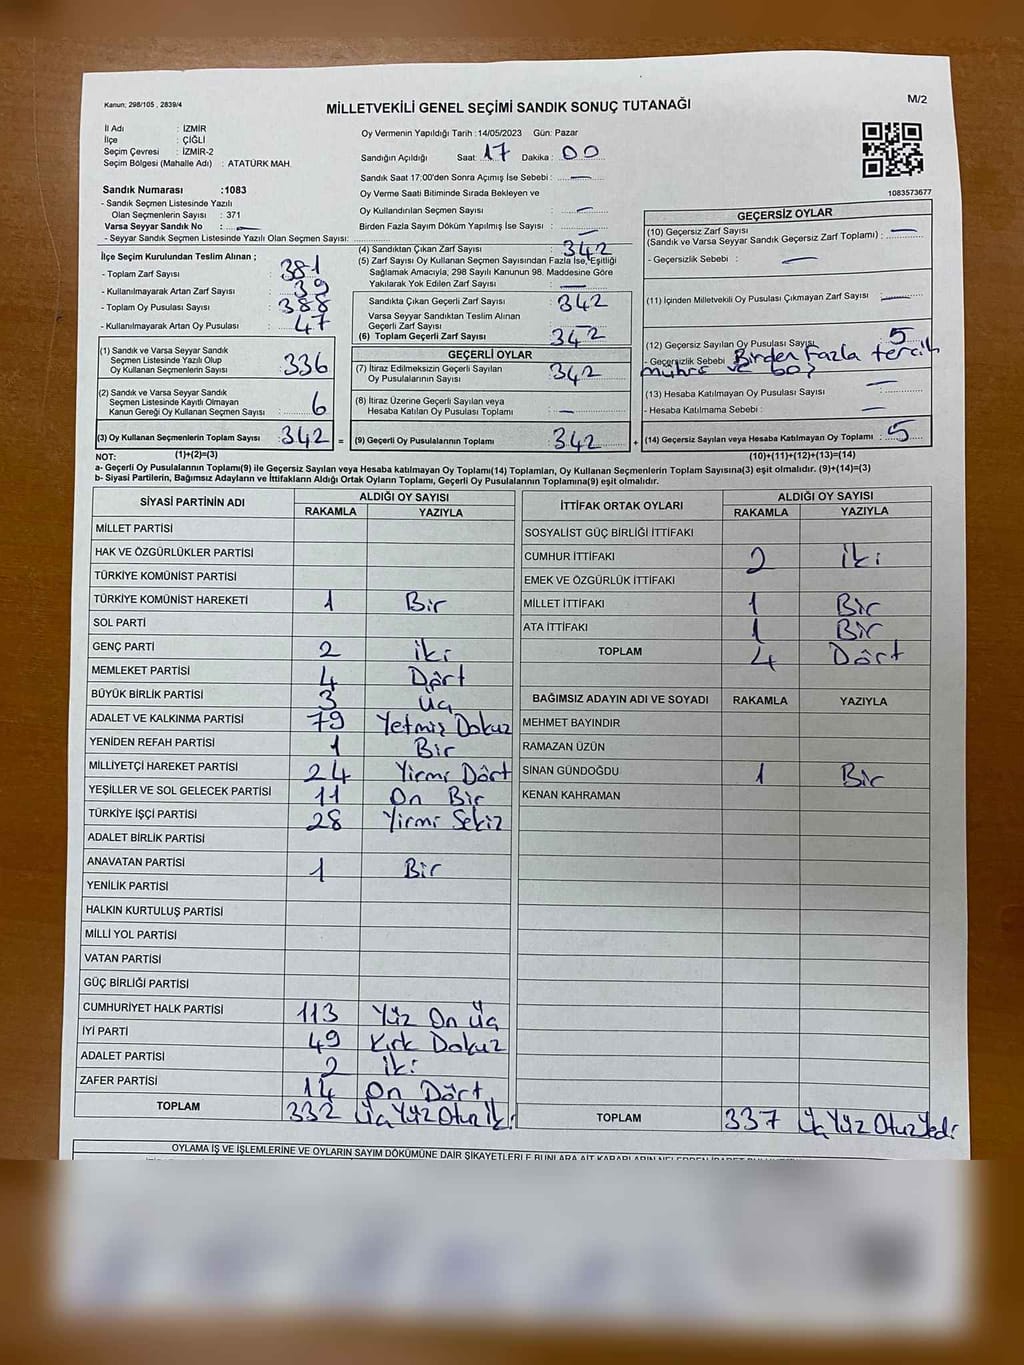 Kanun; 298/105 , 2839/4
MİLLETVEKİLİ GENEL SEÇİMİ SANDIK SONUÇ TUTANAĞI
M/2
İl Adı : İZMİR
İlçe : ÇİĞLİ
Seçim Çevresi : İZMİR-2
Seçim Bölgesi (Mahalle Adı) : ATATÜRK MAH.
Oy Vermenin Yapıldığı Tarih :14/05/2023 Gün: Pazar
Sandığın Açıldığı Saat: 17 Dakika : 00
Sandık Saat 17:00'den Sonra Açımış İse Sebebi : —
Oy Verme Saati Bitiminde Sırada Bekleyen ve
Oy Kullandırılan Seçmen Sayısı : —
Birden Fazla Sayım Döküm Yapılmış İse Sayısı : —
1083573677
Sandık Numarası :1083
- Sandık Seçmen Listesinde Yazılı
Olan Seçmenlerin Sayısı : 371
Varsa Seyyar Sandık No : —
- Seyyar Sandık Seçmen Listesinde Yazılı Olan Seçmen Sayısı:
İlçe Seçim Kurulundan Teslim Alınan ;
- Toplam Zarf Sayısı : 381
- Kullanılmayarak Artan Zarf Sayısı : 39
- Toplam Oy Pusulası Sayısı : 388
- Kullanılmayarak Artan Oy Pusulası : 47
(1) Sandık ve Varsa Seyyar Sandık
Seçmen Listesinde Yazılı Olup
Oy Kullanan Seçmenlerin Sayısı : 336
(2) Sandık ve Varsa Seyyar Sandık
Seçmen Listesinde Kayıtlı Olmayan
Kanun Gereği Oy Kullanan Seçmen Sayısı : 6
(3) Oy Kullanan Seçmenlerin Toplam Sayısı : 342 =
(4) Sandıktan Çıkan Zarf Sayısı : 342
(5) Zarf Sayısı Oy Kullanan Seçmen Sayısından Fazla İse, Eşitliği
Sağlamak Amacıyla, 298 Sayılı Kanunun 98. Maddesine Göre
Yakılarak Yok Edilen Zarf Sayısı : —
Sandıkta Çıkan Geçerli Zarf Sayısı : 342
Varsa Seyyar Sandıktan Teslim Alınan
Geçerli Zarf Sayısı : —
(6) Toplam Geçerli Zarf Sayısı : 342
GEÇERLİ OYLAR
(7) İtiraz Edilmeksizin Geçerli Sayılan
Oy Pusulalarının Sayısı : 342
(8) İtiraz Üzerine Geçerli Sayılan veya
Hesaba Katılan Oy Pusulası Toplamı : —
(9) Geçerli Oy Pusulalarının Toplamı : 342 +
GEÇERSİZ OYLAR
(10) Geçersiz Zarf Sayısı
(Sandık ve Varsa Seyyar Sandık Geçersiz Zarf Toplamı) : —
- Geçersizlik Sebebi : —
(11) İçinden Milletvekili Oy Pusulası Çıkmayan Zarf Sayısı : —
(12) Geçersiz Sayılan Oy Pusulası Sayısı : 5
- Geçersizlik Sebebi : Birden fazla tercih
mührü ve boş
(13) Hesaba Katılmayan Oy Pusulası Sayısı : —
- Hesaba Katılmama Sebebi : —
(14) Geçersiz Sayılan veya Hesaba Katılmayan Oy Toplamı : 5
NOT: (1)+(2)=(3) (10)+(11)+(12)+(13)=(14)
a- Geçerli Oy Pusulalarının Toplamı(9) ile Geçersiz Sayılan veya Hesaba katılmayan Oy Toplamı(14) Toplamları, Oy Kullanan Seçmenlerin Toplam Sayısına(3) eşit olmalıdır. (9)+(14)=(3)
b- Siyasi Partilerin, Bağımsız Adayların ve İttifakların Aldığı Ortak Oyların Toplamı, Geçerli Oy Pusulalarının Toplamına(9) eşit olmalıdır.
SİYASİ PARTİNİN ADI ALDIĞI OY SAYISI
RAKAMLA YAZIYLA
MİLLET PARTİSİ
HAK VE ÖZGÜRLÜKLER PARTİSİ
TÜRKİYE KOMÜNİST PARTİSİ
TÜRKİYE KOMÜNİST HAREKETİ 1 Bir
SOL PARTİ
GENÇ PARTİ 2 iki
MEMLEKET PARTİSİ 4 Dört
BÜYÜK BİRLİK PARTİSİ 3 üç
ADALET VE KALKINMA PARTİSİ 79 Yetmiş Dokuz
YENİDEN REFAH PARTİSİ 1 Bir
MİLLİYETÇİ HAREKET PARTİSİ 24 Yirmi Dört
YEŞİLLER VE SOL GELECEK PARTİSİ 11 On Bir
TÜRKİYE İŞÇİ PARTİSİ 28 Yirmi Sekiz
ADALET BİRLİK PARTİSİ
ANAVATAN PARTİSİ 1 Bir
YENİLİK PARTİSİ
HALKIN KURTULUŞ PARTİSİ
MİLLİ YOL PARTİSİ
VATAN PARTİSİ
GÜÇ BİRLİĞİ PARTİSİ
CUMHURİYET HALK PARTİSİ 113 Yüz On Üç
İYİ PARTİ 49 Kırk Dokuz
ADALET PARTİSİ 2 iki
ZAFER PARTİSİ 14 On Dört
TOPLAM 332 Üç Yüz Otuz İki
İTTİFAK ORTAK OYLARI ALDIĞI OY SAYISI
RAKAMLA YAZIYLA
SOSYALİST GÜÇ BİRLİĞİ İTTİFAKI
CUMHUR İTTİFAKI 2 iki
EMEK VE ÖZGÜRLÜK İTTİFAKI
MİLLET İTTİFAKI 1 Bir
ATA İTTİFAKI 1 Bir
TOPLAM 4 Dört
BAĞIMSIZ ADAYIN ADI VE SOYADI RAKAMLA YAZIYLA
MEHMET BAYINDIR
RAMAZAN ÜZÜN
SİNAN GÜNDOĞDU 1 Bir
KENAN KAHRAMAN
TOPLAM 337 Üç Yüz Otuz Yedi
OYLAMA İŞ VE İŞLEMLERİNE VE OYLARIN SAYIM DÖKÜMÜNE DAİR ŞİKAYETLERLE BUNLARA AİT KARARLARIN